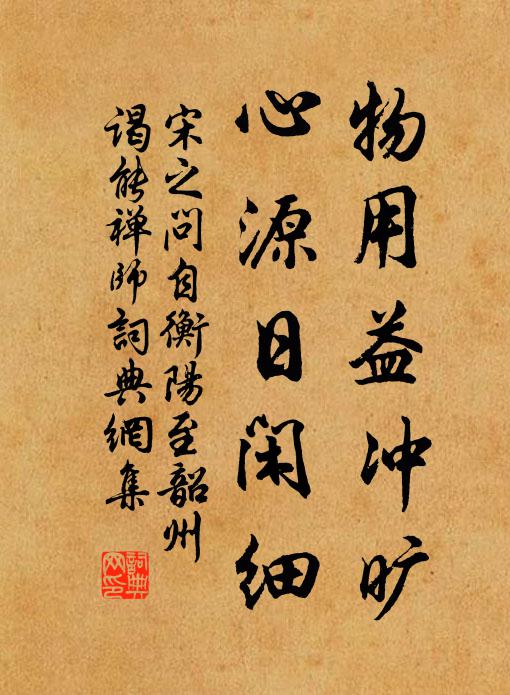 物用益冲旷
心源日闲细
宋之问自衡陽至韶州
谒能禅師詞典網集
詞典
网印